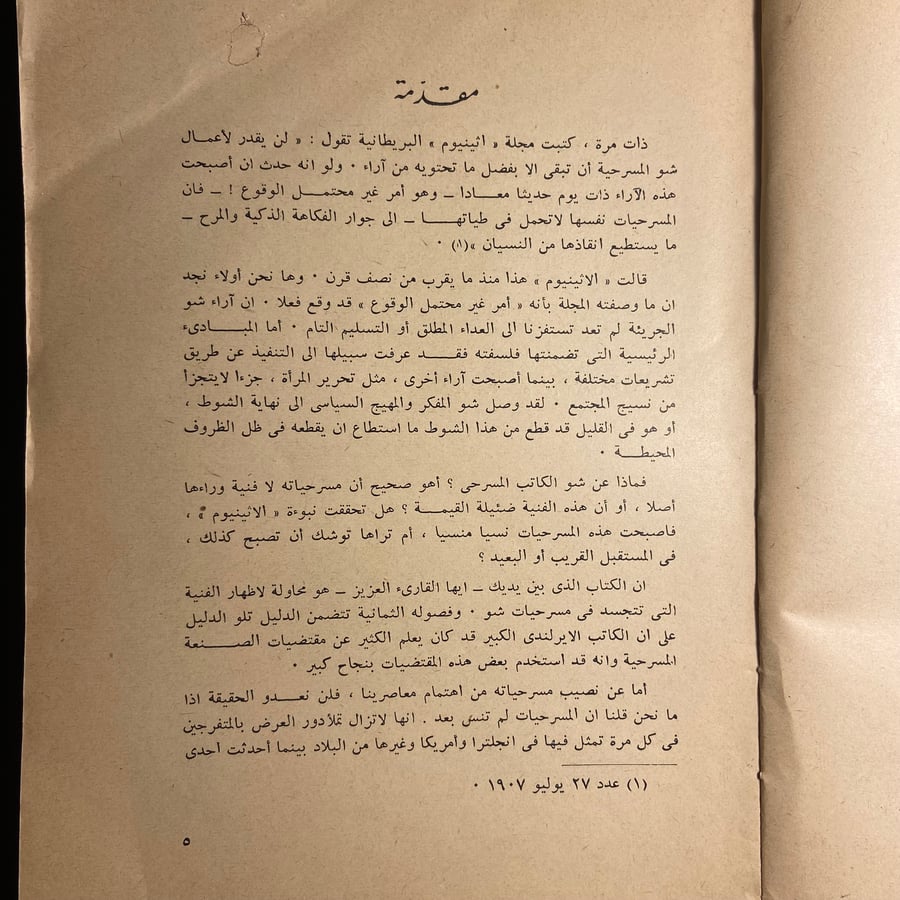 مقدّمة
ذات مرة ، كتبت مجلة « اثينيوم » البريطانية تقول : « لن يقدر لأعمال
شو المسرحية أن تبقى الا بفضل ما تحتويه من آراء ٠ ولو انه حدث ان أصبحت
هذه الآراء ذات يوم حديثا معادا ــ وهو أمر غير محتمل الوقوع ! ــ فان
المسرحيات نفسها لاتحمل فى طياتها ــ الى جوار الفكاهة الذكية والمرح ــ
ما يستطيع انقاذها من النسيان »(١) ٠
قالت « الاثينيوم » هذا منذ ما يقرب من نصف قرن ٠ وها نحن أولاء نجد
ان ما وصفته المجلة بأنه « أمر غير محتمل الوقوع » قد وقع فعلا ٠ ان آراء شو
الجريئة لم تعد تستفزنا الى العداء المطلق أو التسليم التام ٠ أما المبادىء
الرئيسية التى تضمنتها فلسفته فقد عرفت سبيلها الى التنفيذ عن طريق
تشريعات مختلفة ، بينما أصبحت آراء أخرى ، مثل تحرير المرأة ، جزءا لايتجزأ
من نسيج المجتمع ٠ لقد وصل شو المفكر والمهيج السياسى الى نهاية الشوط ،
أو هو فى القليل قد قطع من هذا الشوط ما استطاع ان يقطعه فى ظل الظروف
المحيطة ٠
فماذا عن شو الكاتب المسرحى ؟ أهو صحيح أن مسرحياته لا فنية وراءها
أصلا ، أو أن هذه الفنية ضئيلة القيمة ؟ هل تحققت نبوءة « الاثينيوم » ،
فاصبحت هذه المسرحيات نسيا منسيا ، أم تراها توشك أن تصبح كذلك ،
فى المستقبل القريب أو البعيد ؟
ان الكتاب الذى بين يديك ــ ايها القارىء العزيز ــ هو محاولة لاظهار الفنية
التى تتجسد فى مسرحيات شو ٠ وفصوله الثمانية تتضمن الدليل تلو الدليل
على ان الكاتب الايرلندى الكبير قد كان يعلم الكثير عن مقتضيات الصنعة
المسرحية وانه قد استخدم بعض هذه المقتضيات بنجاح كبير ٠
أما عن نصيب مسرحياته من اهتمام معاصرينا ، فلن نعدو الحقيقة اذا
ما نحن قلنا ان المسرحيات لم تنس بعد . انها لاتزال تملأ دور العرض بالمتفرجين
فى كل مرة تمثل فيها فى انجلترا وأمريكا وغيرها من البلاد بينما أحدثت احدى
(١) عدد ٢٧ يوليو ١٩٠٧ ٠
٥